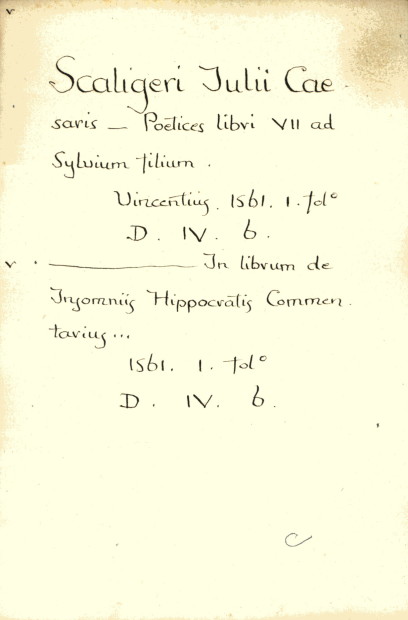 Scaligeri Iulii Cae
saris — Poëtices libri VII ad
Sylvium filium.
Vincentius. 1561. 1. folº
D. IV. 6.
— In librum de
Insomniis Hippocratis Commen.
tarius...
1561. 1. folº
D. IV. 6.